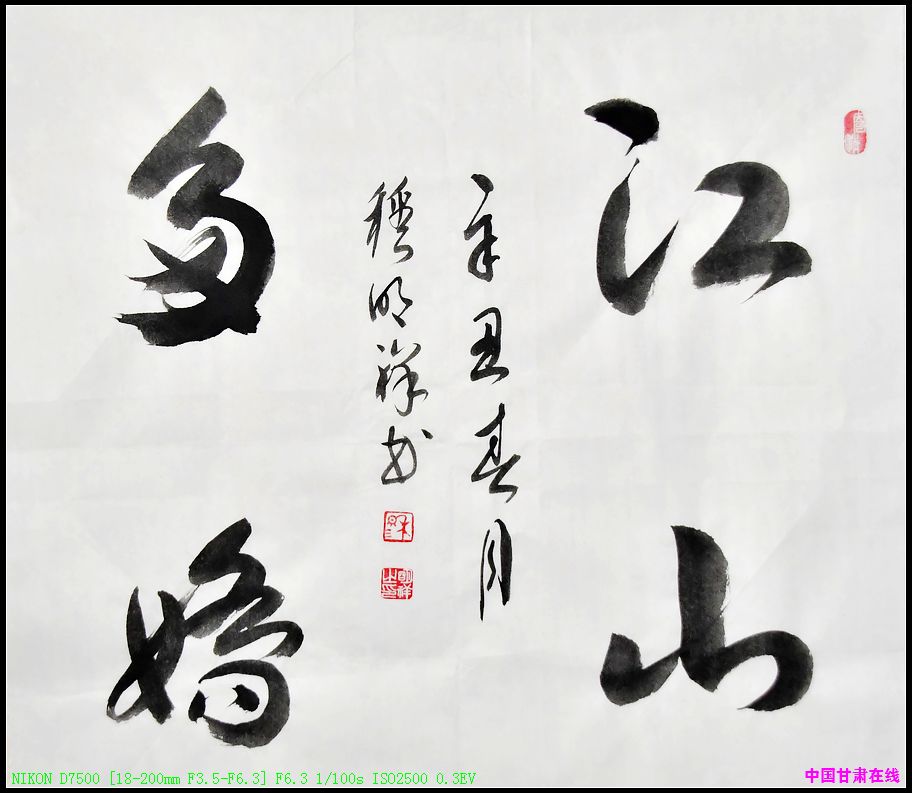 江山
多嬌
辛丑春月
穆明祥书
NIKON D7500 [18-200mm F3.5-F6.3] F6.3 1/100s ISO2500 0.3EV
中国甘肃在线